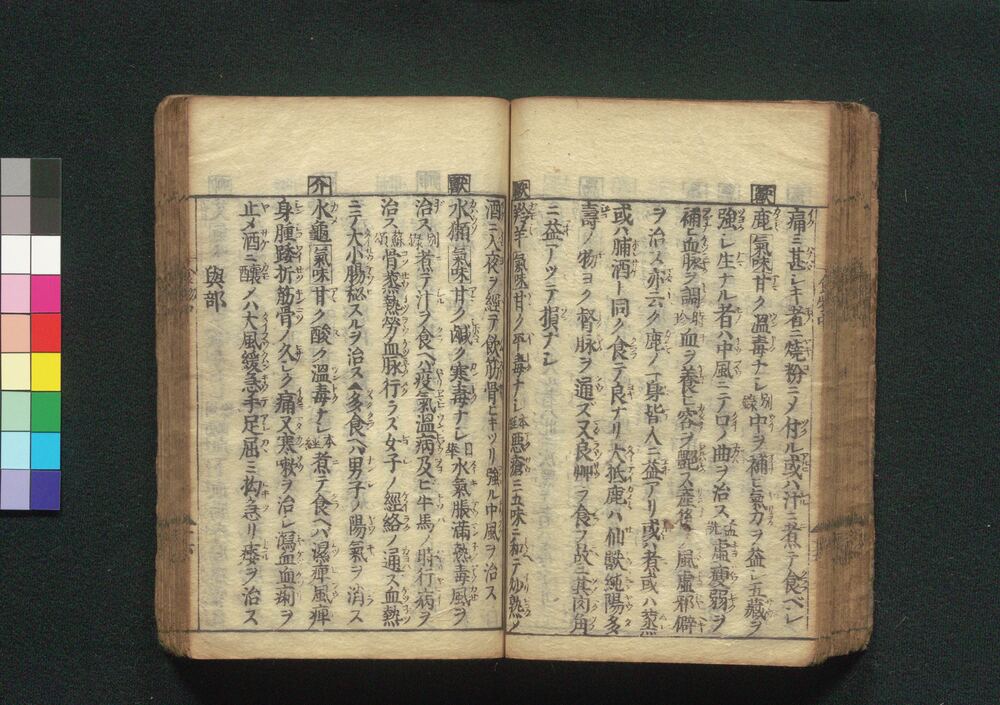 痛ミ甚シキ者ニ燒粉ニメ付ル或ハ汁ニ煮テ食ベシ
獸 鹿 氣味甘ク溫毒ナシ 別錄 中ヲ補ヒ氣力ヲ益シ五藏ヲ
強シ生ナル者ハ中風ニテ口ノ曲ヲ治ス 孟詵 虛瘦弱ヲ
補ヒ血脉ヲ調 時珍 血ヲ養ヒ容ヲ艷ス產後ノ風虛邪僻
ヲ治ス亦云ク鹿ノ一身皆人ニ益アリ或ハ煮或ハ蒸
或ハ脯酒ト同ク食テ良ナリ大抵鹿ハ仙獸純陽多
壽ノ物ヨク督脉ヲ通ズ又良艸ヲ食フ故ニ其肉角
ニ益アツテ損ナシ
獸 羚羊 氣味甘ク平毒ナシ 本經 惡瘡ニ五味ニ和テ炒熟シ
酒ニ入夜ヲ經テ飲筋骨ヒキツリ強ル中風ヲ治ス
獸 水獺 氣味甘ク鹹ク寒毒ナシ 日華 水氣脹滿熱毒風ヲ
治ス 別錄 煮テ汁ヲ食ヘハ疫氣溫病及ヒ牛馬ノ時行病ヲ
治ス 蘇頌 骨蒸熱勞血脉行ラズ女子ノ經絡ノ通ス血熱
ニテ大小腸秘スルヲ治ス多食ヘハ男子ノ陽氣ヲ消ス
介 水龜 氣味甘ク酸ク溫毒ナシ 本經 煮テ食ヘハ濕痺風痺
身腫踒折筋骨ノ久シク痛又寒嗽ヲ治シ瀉血血痢ヲ
止メ酒ニ釀メハ大風緩急手足屈ミ拘急リ痿ヲ治ス
與部